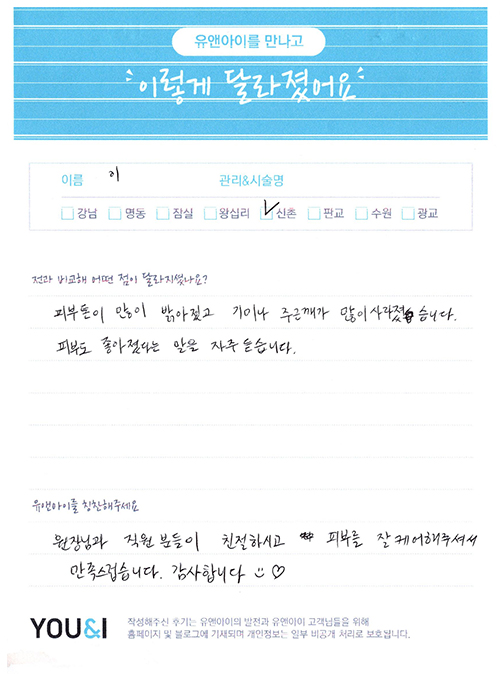 유앤아이를 만나고
이렇게 달라졌어요
이름 이 관리&시술명
강남 명동 잠실 왕십리 신촌 판교 수원 광교
전과 비교해 어떤 점이 달라지셨나요?
피부톤이 많이 밝아졌고 기미나 주근깨가 많이 사라졌습니다.
피부도 좋아졌다는 말을 자주 듣습니다.
유앤아이를 칭찬해주세요
원장님과 직원분들이 친절하시고 피부를 잘 케어해주셔서
만족스럽습니다. 감사합니다 ♡
YOU&I
작성해주신 후기는 유앤아이의 발전과 유앤아이 고객님들을 위해
홈페이지 및 블로그에 기재되며 개인정보는 일부 비공개 처리로 보호됩니다.